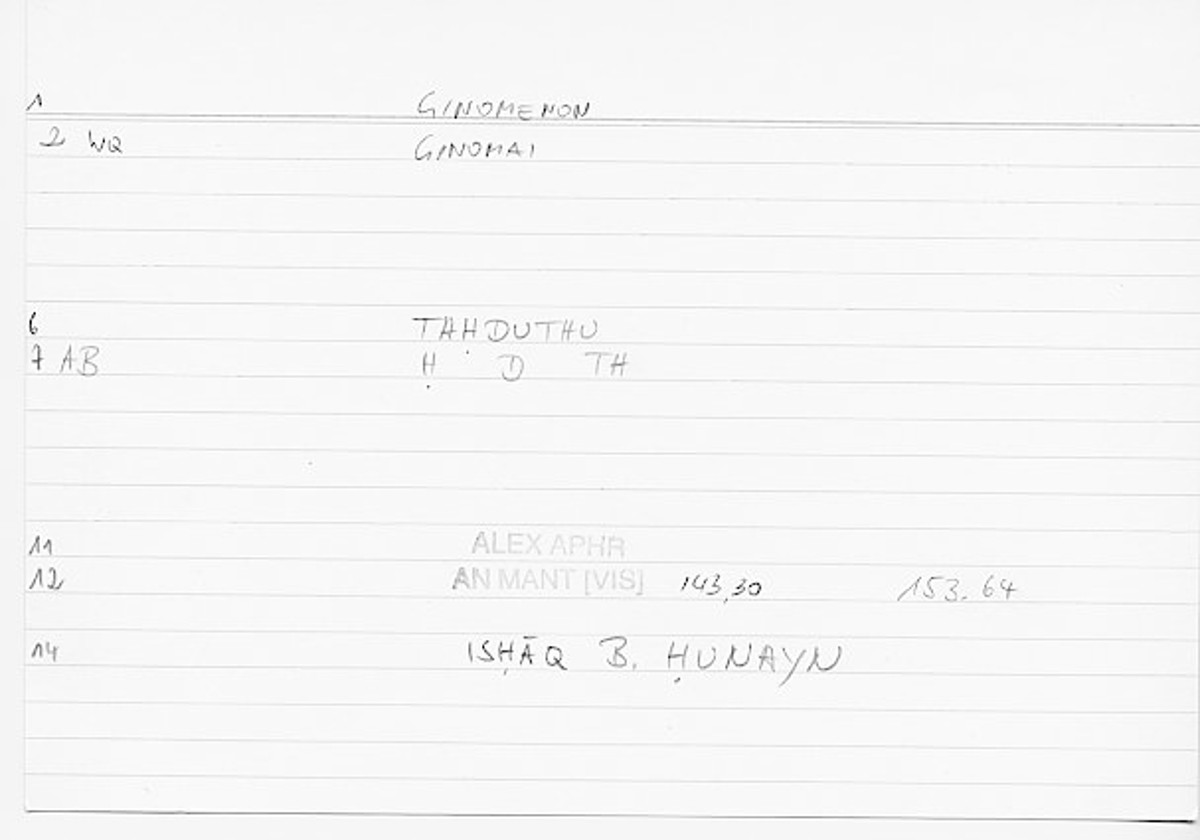 1 GINOMENON
2 WQ GINOMAI
6 TAḤDUTHU
7 AB Ḥ D TH
11 ALEX APHR
12 AN MANT [VIS] 143,30 153.64
14 ISḤĀQ B. ḤUNAYN